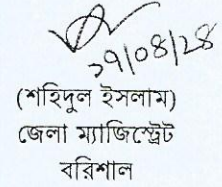 ২৭/০৪/২৪
(শহিদুল ইসলাম)
জেলা ম্যাজিস্ট্রেট
বরিশাল